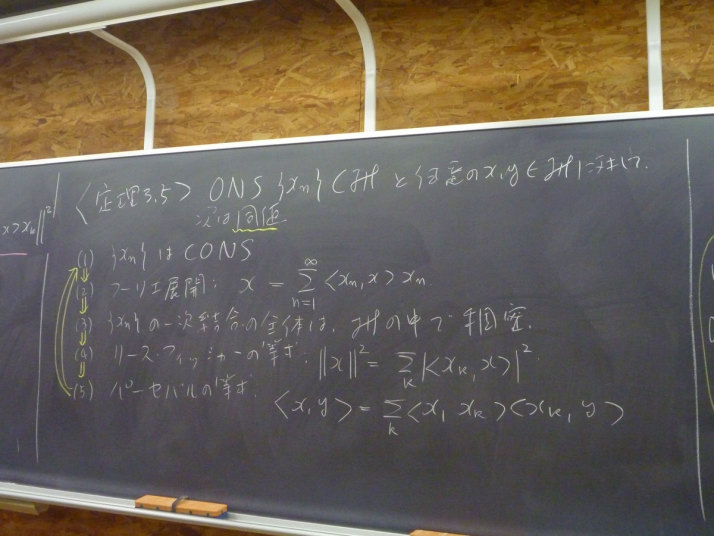 <定理3.5> ONS {xn} ⊂ ℋ と任意の x, y ∈ ℋ に対して,
次は同値
x>xk||²
(1) {xn} は CONS
(2) フーリエ展開: x = Σ_{n=1}^{∞} <xn, x> xn.
(3) {xn} の一次結合の全体は, ℋ の中で稠密.
(4) リース・フィッシャーの等式. ||x||² = Σ_k |<xk, x>|².
(5) パーセバルの等式. <x, y> = Σ_k <x, xk><xk, y>